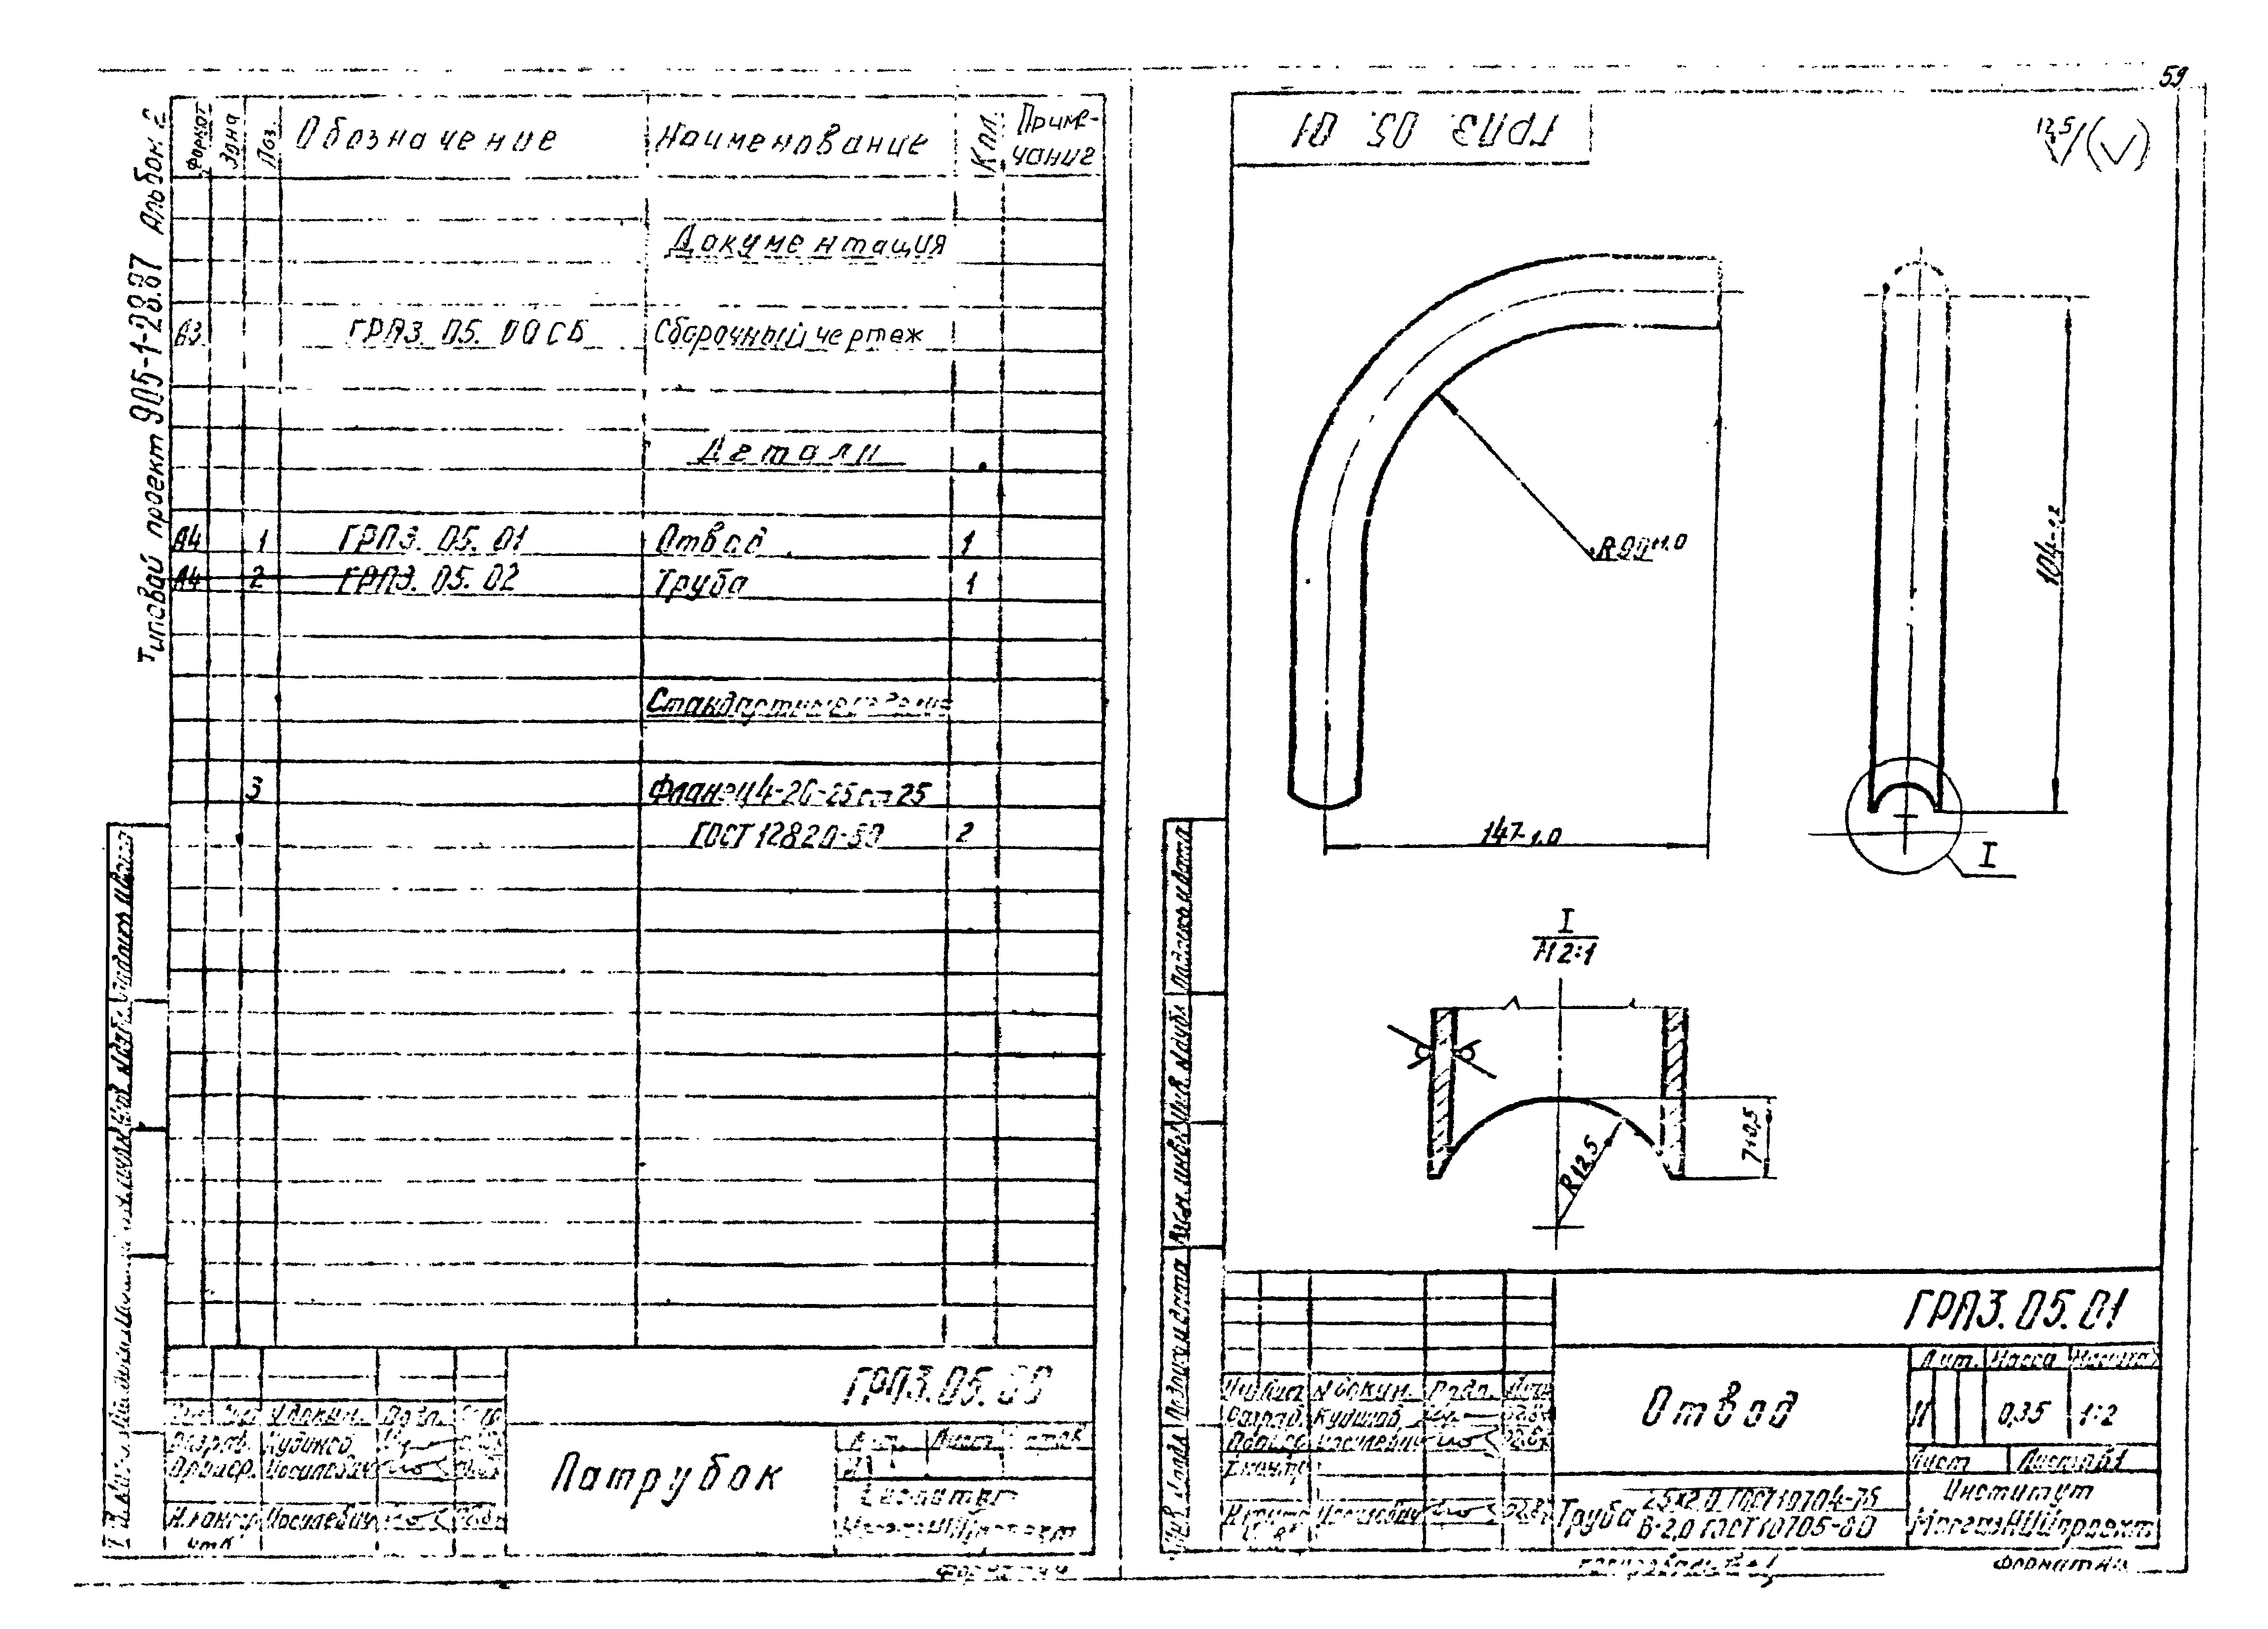 59
Типовой проект 905-1-28.87 Альбом 2
Формат Зона Поз. Обозначение Наименование Кол. Приме-
чание
Документация
А3 ГРПЗ. 05. 00 СБ Сборочный чертеж
Детали
А4 1 ГРПЗ. 05. 01 Отвод 1
А4 2 ГРПЗ. 05. 02 Труба 1
Стандартные изделия
3 Фланец 4-20-25 ст 25
ГОСТ 12820-80 2
ГРПЗ.05.00
N докум. Подп.
Разраб. Кудинов
Провер. Иосилевич
Н.контр. Иосилевич
Патрубок
Лит. Лист
И
Институт
МосгазНИИпроект
ГРПЗ. 05. 01
12,5
R90+1.0
104-2,2
147-1.0
I
I
М 2:1
R12,5
7±0,5
Подпись и дата
Инв. N дубл
Взам. инв. N
Подпись и дата
ГРПЗ.05.01
Лит. Масса Масштаб
Лист N докум. Подп. Дата
Разраб. Кудинов
Провер. Иосилевич
Т.контр.
Н.контр. Иосилевич
Отвод
И 0,35 1:2
Лист Листов 1
Труба 25х2,0 ГОСТ 10704-76
В-2,0 ГОСТ 10705-80
Институт
МосгазНИИпроект
Копировал:
Формат А4